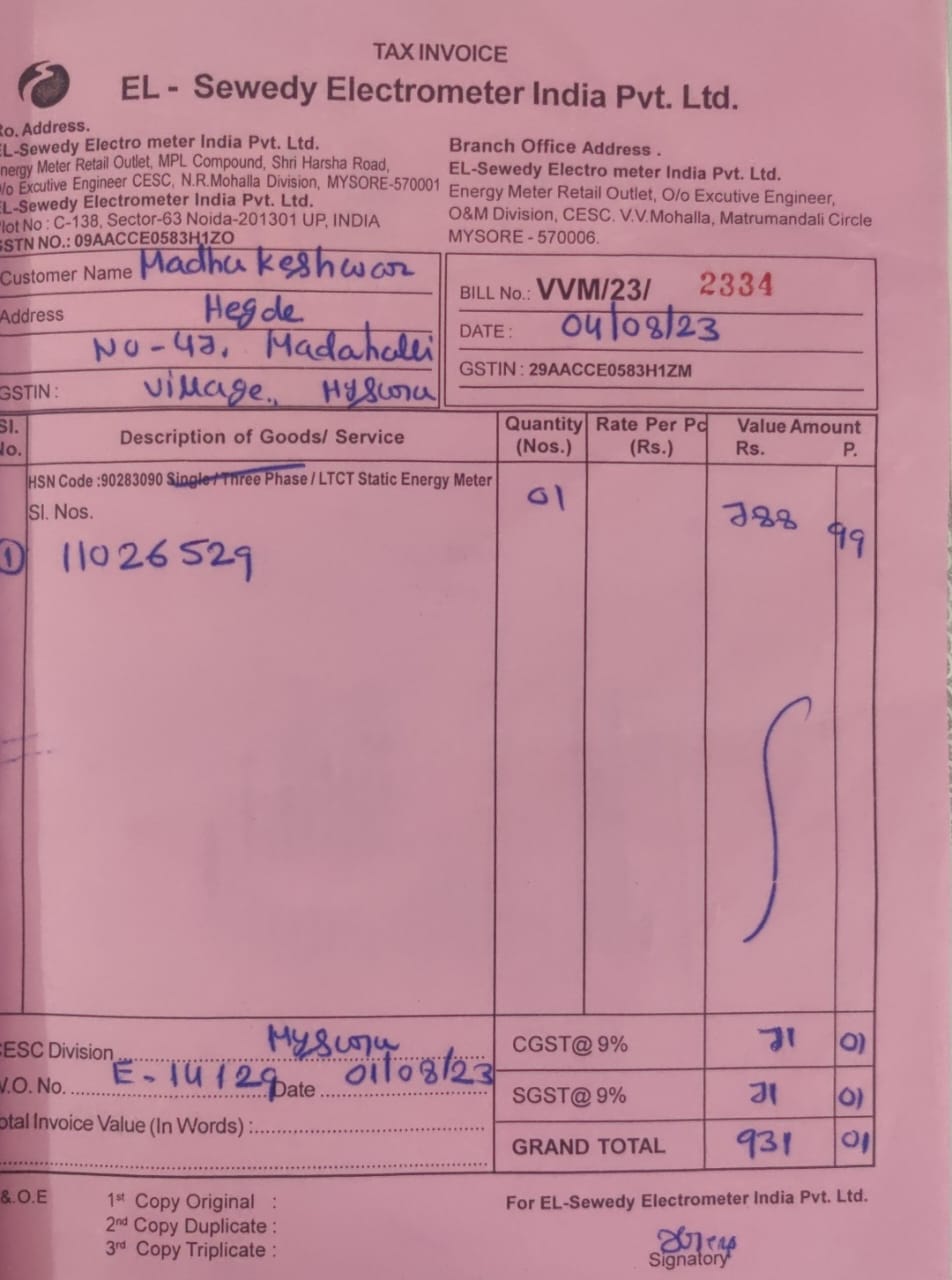 TAX INVOICE
EL - Sewedy Electrometer India Pvt. Ltd.
Address.
EL-Sewedy Electro meter India Pvt. Ltd.
Energy Meter Retail Outlet, MPL Compound, Shri Harsha Road,
O/o Excutive Engineer CESC, N.R.Mohalla Division, MYSORE-570001
EL-Sewedy Electrometer India Pvt. Ltd.
Plot No : C-138, Sector-63 Noida-201301 UP, INDIA
GSTN NO.: 09AACCE0583H1ZO
Branch Office Address .
EL-Sewedy Electro meter India Pvt. Ltd.
Energy Meter Retail Outlet, O/o Excutive Engineer,
O&M Division, CESC. V.V.Mohalla, Matrumandali Circle
MYSORE - 570006.
Customer Name Madhukeshwar
Address Hegde
No-47, Madahalli
GSTIN : Village., Mysuru
BILL No.: VVM/23/ 2334
DATE : 04/08/23
GSTIN : 29AACCE0583H1ZM
Sl. No. Description of Goods/ Service Quantity (Nos.) Rate Per Pc (Rs.) Value Amount Rs. P.
HSN Code :90283090 Single / Three Phase / LTCT Static Energy Meter 01 788 99
Sl. Nos.
1 11026529
CESC Division Mysuru
W.O. No. E-14129 Date 01/08/23
Total Invoice Value (In Words) :
CGST@ 9% 71 01
SGST@ 9% 71 01
GRAND TOTAL 931 01
&.O.E
1st Copy Original :
2nd Copy Duplicate :
3rd Copy Triplicate :
For EL-Sewedy Electrometer India Pvt. Ltd.
Signatory